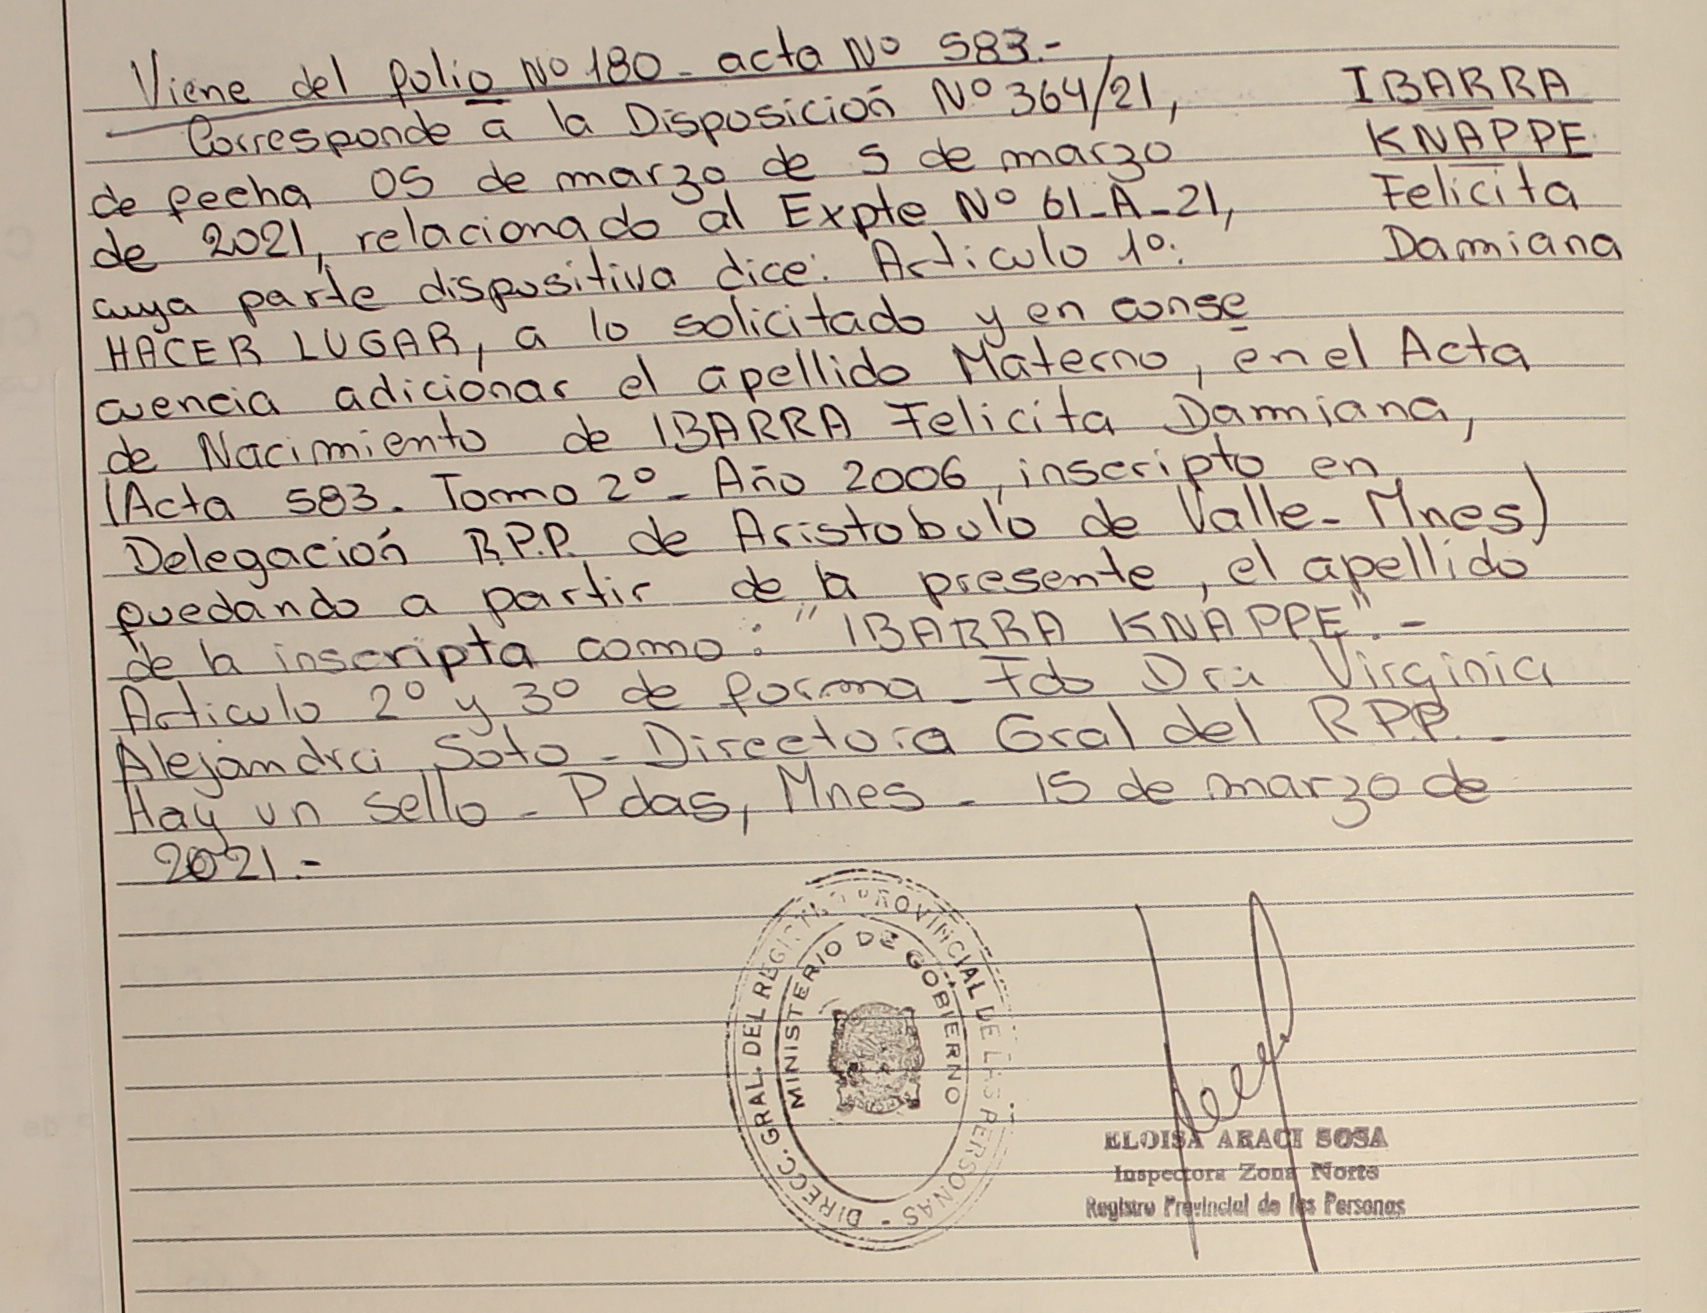 Viene del folio Nº 180 - acta Nº 583.-
Corresponde a la Disposición Nº 364/21,
de fecha 05 de marzo de 5 de marzo
de 2021, relacionado al Expte Nº 61-A-21,
cuya parte dispositiva dice: Articulo 1º:
HACER LUGAR, a lo solicitado y en conse
cuencia adicionar el apellido Materno, en el Acta
de Nacimiento de IBARRA Felicita Damiana,
(Acta 583. Tomo 2º - Año 2006, inscripto en
Delegación R.P.P. de Aristobulo de Valle - Mnes)
quedando a partir de la presente, el apellido
de la inscripta como: "IBARRA KNAPPE".-
Articulo 2º y 3º de forma - Fdo Dra Virginia
Alejandra Soto - Directora Gral del R.P.P. -
Hay un sello - Pdas, Mnes - 15 de marzo de
2021.-
IBARRA
KNAPPE
Felicita
Damiana
DIRECC. GRAL. DEL REGISTRO PROVINCIAL DE LAS PERSONAS -
MINISTERIO DE GOBIERNO
ELOISA ARACI SOSA
Inspectora Zona Norte
Registro Provincial de las Personas